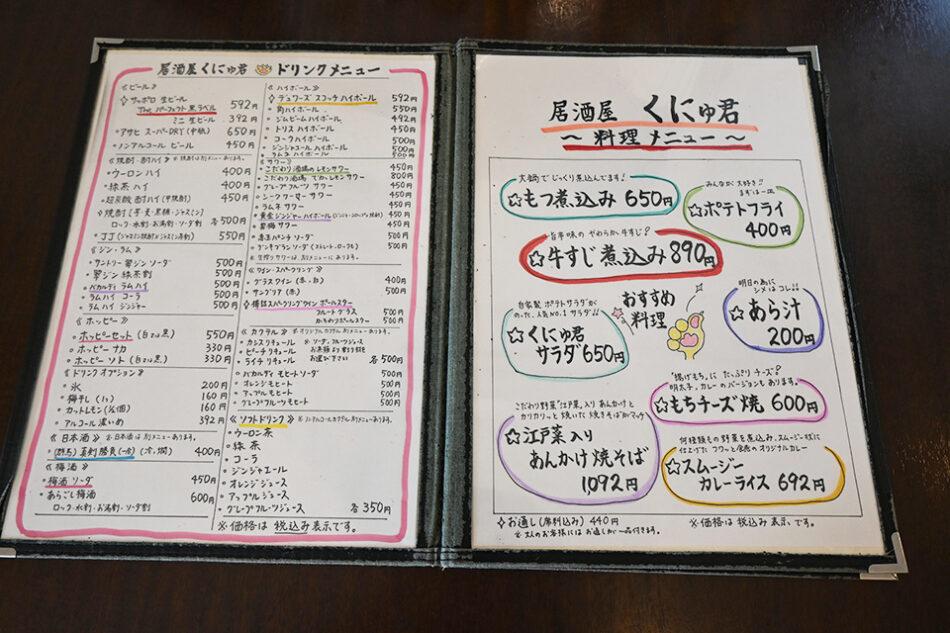 居酒屋 くにゅ君 ドリンクメニュー
《ビール》
サッポロ 生ビール
The パーフェクト 黒ラベル 592円
ミニ 生ビール 392円
アサヒ スーパーDRY (中瓶) 650円
ノンアルコール ビール 450円
《焼酎・酎ハイ》
ウーロン ハイ 400円
緑茶 ハイ 400円
超炭酸 酎ハイ (甲類焼酎) 450円
焼酎 (芋・麦・黒糖・ジャスミン)
ロック・水割・お湯割・ソーダ割 各500円
JJ (ジャスミン焼酎のジャスミン茶割) 550円
《ジン・ラム》
サントリー 翠ジン ソーダ 500円
翠ジン 緑茶割 500円
バカルディ ラム ハイ 500円
ラム ハイ コーラ 500円
ラム ハイ ジンジャー 500円
《ホッピー》
ホッピーセット (白 or 黒) 550円
ホッピー ナカ 330円
ホッピー ソト (白 or 黒) 330円
《ドリンク オプション》
氷 200円
梅干し (1ヶ) 160円
カットレモン 160円
アルコール 濃いめ 392円
《日本酒》 ※日本酒は別メニューあります。
(群馬) 真剣勝負 (一合) 400円
《梅酒》
梅酒 ソーダ 450円
あらごし梅酒 600円
ロック・水割・お湯割・ソーダ割
《ハイボール》
デュワーズ スコッチ ハイボール 592円
角ハイボール 550円
ジムビーム ハイボール 492円
トリス ハイボール 450円
コーク ハイボール 500円
ジンジャエール ハイボール 500円
ラムネ ハイボール 500円
《サワー》
こだわり酒場のレモンサワー 450円
こだわり酒場 でかレモンサワー 800円
グレープフルーツ サワー 450円
シークワーサー サワー 450円
ラムネ サワー 450円
黄金ジンジャーハイボール 450円
若梅サワー 450円
赤玉パンチ ソーダ 500円
500円
※生搾りサワーは、別メニューにあります。
《ワイン・スパークリング》
グラスワイン (赤・白) 400円
サングリア (赤・白) 450円
樽詰スパークリングワイン ポールスター
フルートグラス 500円
500円
《カクテル》 ※オリジナルカクテル別メニューあります。
カシスリキュール
ピーチリキュール
ライチリキュール
※ソーダ、フルーツジュース
お茶類より割り材を
お選び下さい 各500円
バカルディ モヒートソーダ 500円
オレンジモヒート 500円
アップルモヒート 500円
グレープフルーツモヒート 500円
《ソフトドリンク》 ※ノンアルコールカクテル別メニューあります。
ウーロン茶
緑茶
コーラ
ジンジャエール
オレンジジュース
アップルジュース
グレープフルーツジュース 各350円
※価格は税込み表示です。
居酒屋 くにゅ君
～料理メニュー～
大鍋でじっくり煮込んでます!
☆もつ煮込み 650円
みんなが大好き!!
まずは一皿
☆ポテトフライ
400円
旨辛味の やわらか牛すじ♪
☆牛すじ煮込み 890円
おすすめ
料理
明日の為に
シメはコレ!!
☆あら汁
200円
自家製 ポテトサラダが
のった、人気NO.1 サラダ!!
☆くにゅ君
サラダ 650円
"揚げもち"に たっぷり チーズ♪
明太子、カレーのバージョンもあります。
☆もちチーズ焼 600円
こだわり野菜"江戸菜"入り あんかけと
カリカリっと 焼いた 焼きそばがマッチ♪
☆江戸菜入り
あんかけ焼そば
1092円
何種類もの 野菜を煮込み、スムージー状に
仕上げた フワッと食感の オリジナルカレー
☆スムージー
カレーライス 692円
お通し (席料込み) 440円
※大人のお客様には お通しが 一品付きます。
※価格は 税込み 表示です。